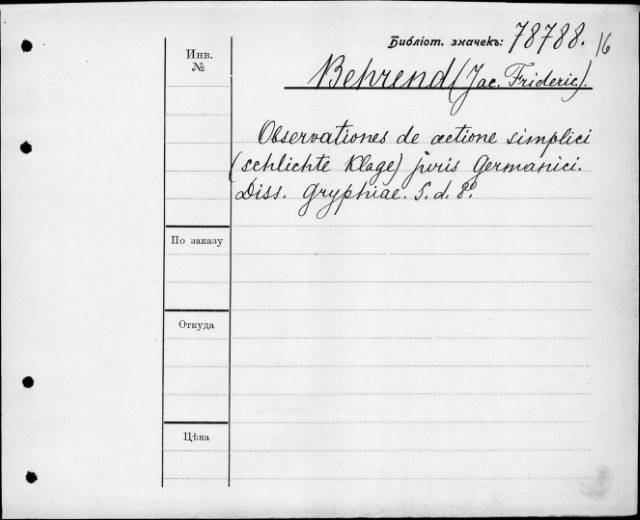 Библіот. значекъ: 78788. 16
Инв.
№
Behrend (Jac. Frideric.).
Observationes de actione simplici
(schlichte Klage) juris Germanici.
Diss. Gryphiae. S. d. 8º.
По заказу
Откуда
Цѣна